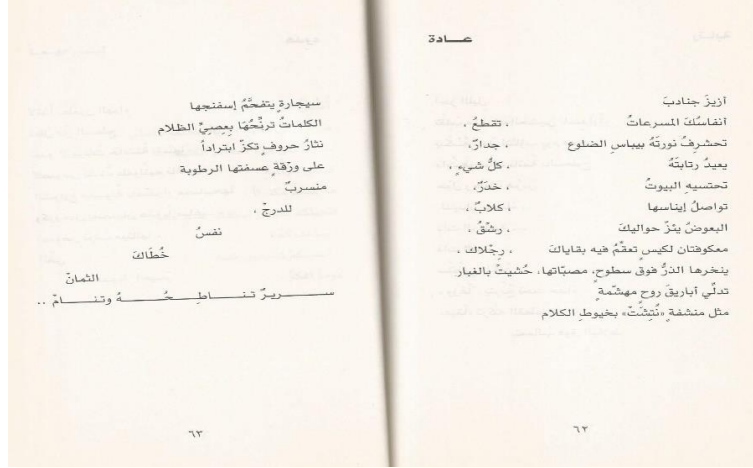 عـــادة
أزيزَ جنادبَ
أنفاسُكَ المسرعاتُ ، تقطعُ ،
تحشرفُ نورتَهُ بيباسِ الضلوع ، جدارٌ ،
يعيدُ رتابتَهُ ، كلُّ شيءٍ ،
تحتسيهِ البيوتُ ، خدَرٌ ،
تواصلُ إيناسها ، كلابٌ ،
البعوضُ ينَزّ حواليكَ ، رشْقُ ،
معكوفتان لكيسٍ تعقّمُ فيه بقاياكَ ، رِجْلاك ،
ينخرها الذرُّ فوق سطوحٍ، مصبّاتها، حُشيتْ بالغبار
تدلّي أباريقَ روحٍ مهشّمةٍ
مثل منشفةٍ «نُتِشَتْ» بخيوطِ الكلام
٦٢
سيجارةٍ يتفحّمُ إسفنجها
الكلماتُ ترنّحُهَا بِعِصِيِّ الظلام
نثارُ حروفٍ تكزّ ابتراداً
على ورَقةٍ عسفتها الرطوبة
منسربٌ
للدرجْ ،
نفسُ
خُطَاكَ
الثمانْ
ســـريـرٌ تـنـاطـحُـهُ وتـنـامْ ..
٦٣